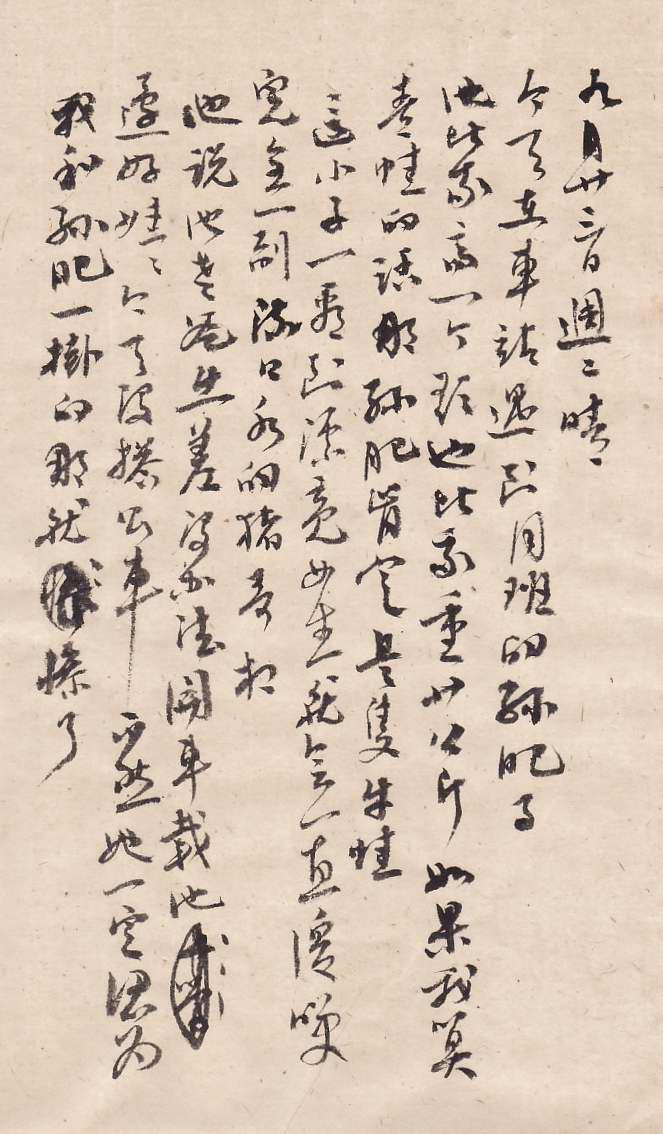 九月廿三日週二晴
今天在車站遇到同班的孫肥了
他比我高一个頭也比我重廿公斤如果我算
青蛙的話那孫肥肯定是隻牛蛙
這小子一看到漂亮女生就会一直傻笑
完全一副流口水的豬哥相
他說他老爸出差沒办法開車載他
還好娃娃今天沒搭公車不然她一定認为
我和孫肥一掛的那就慘了